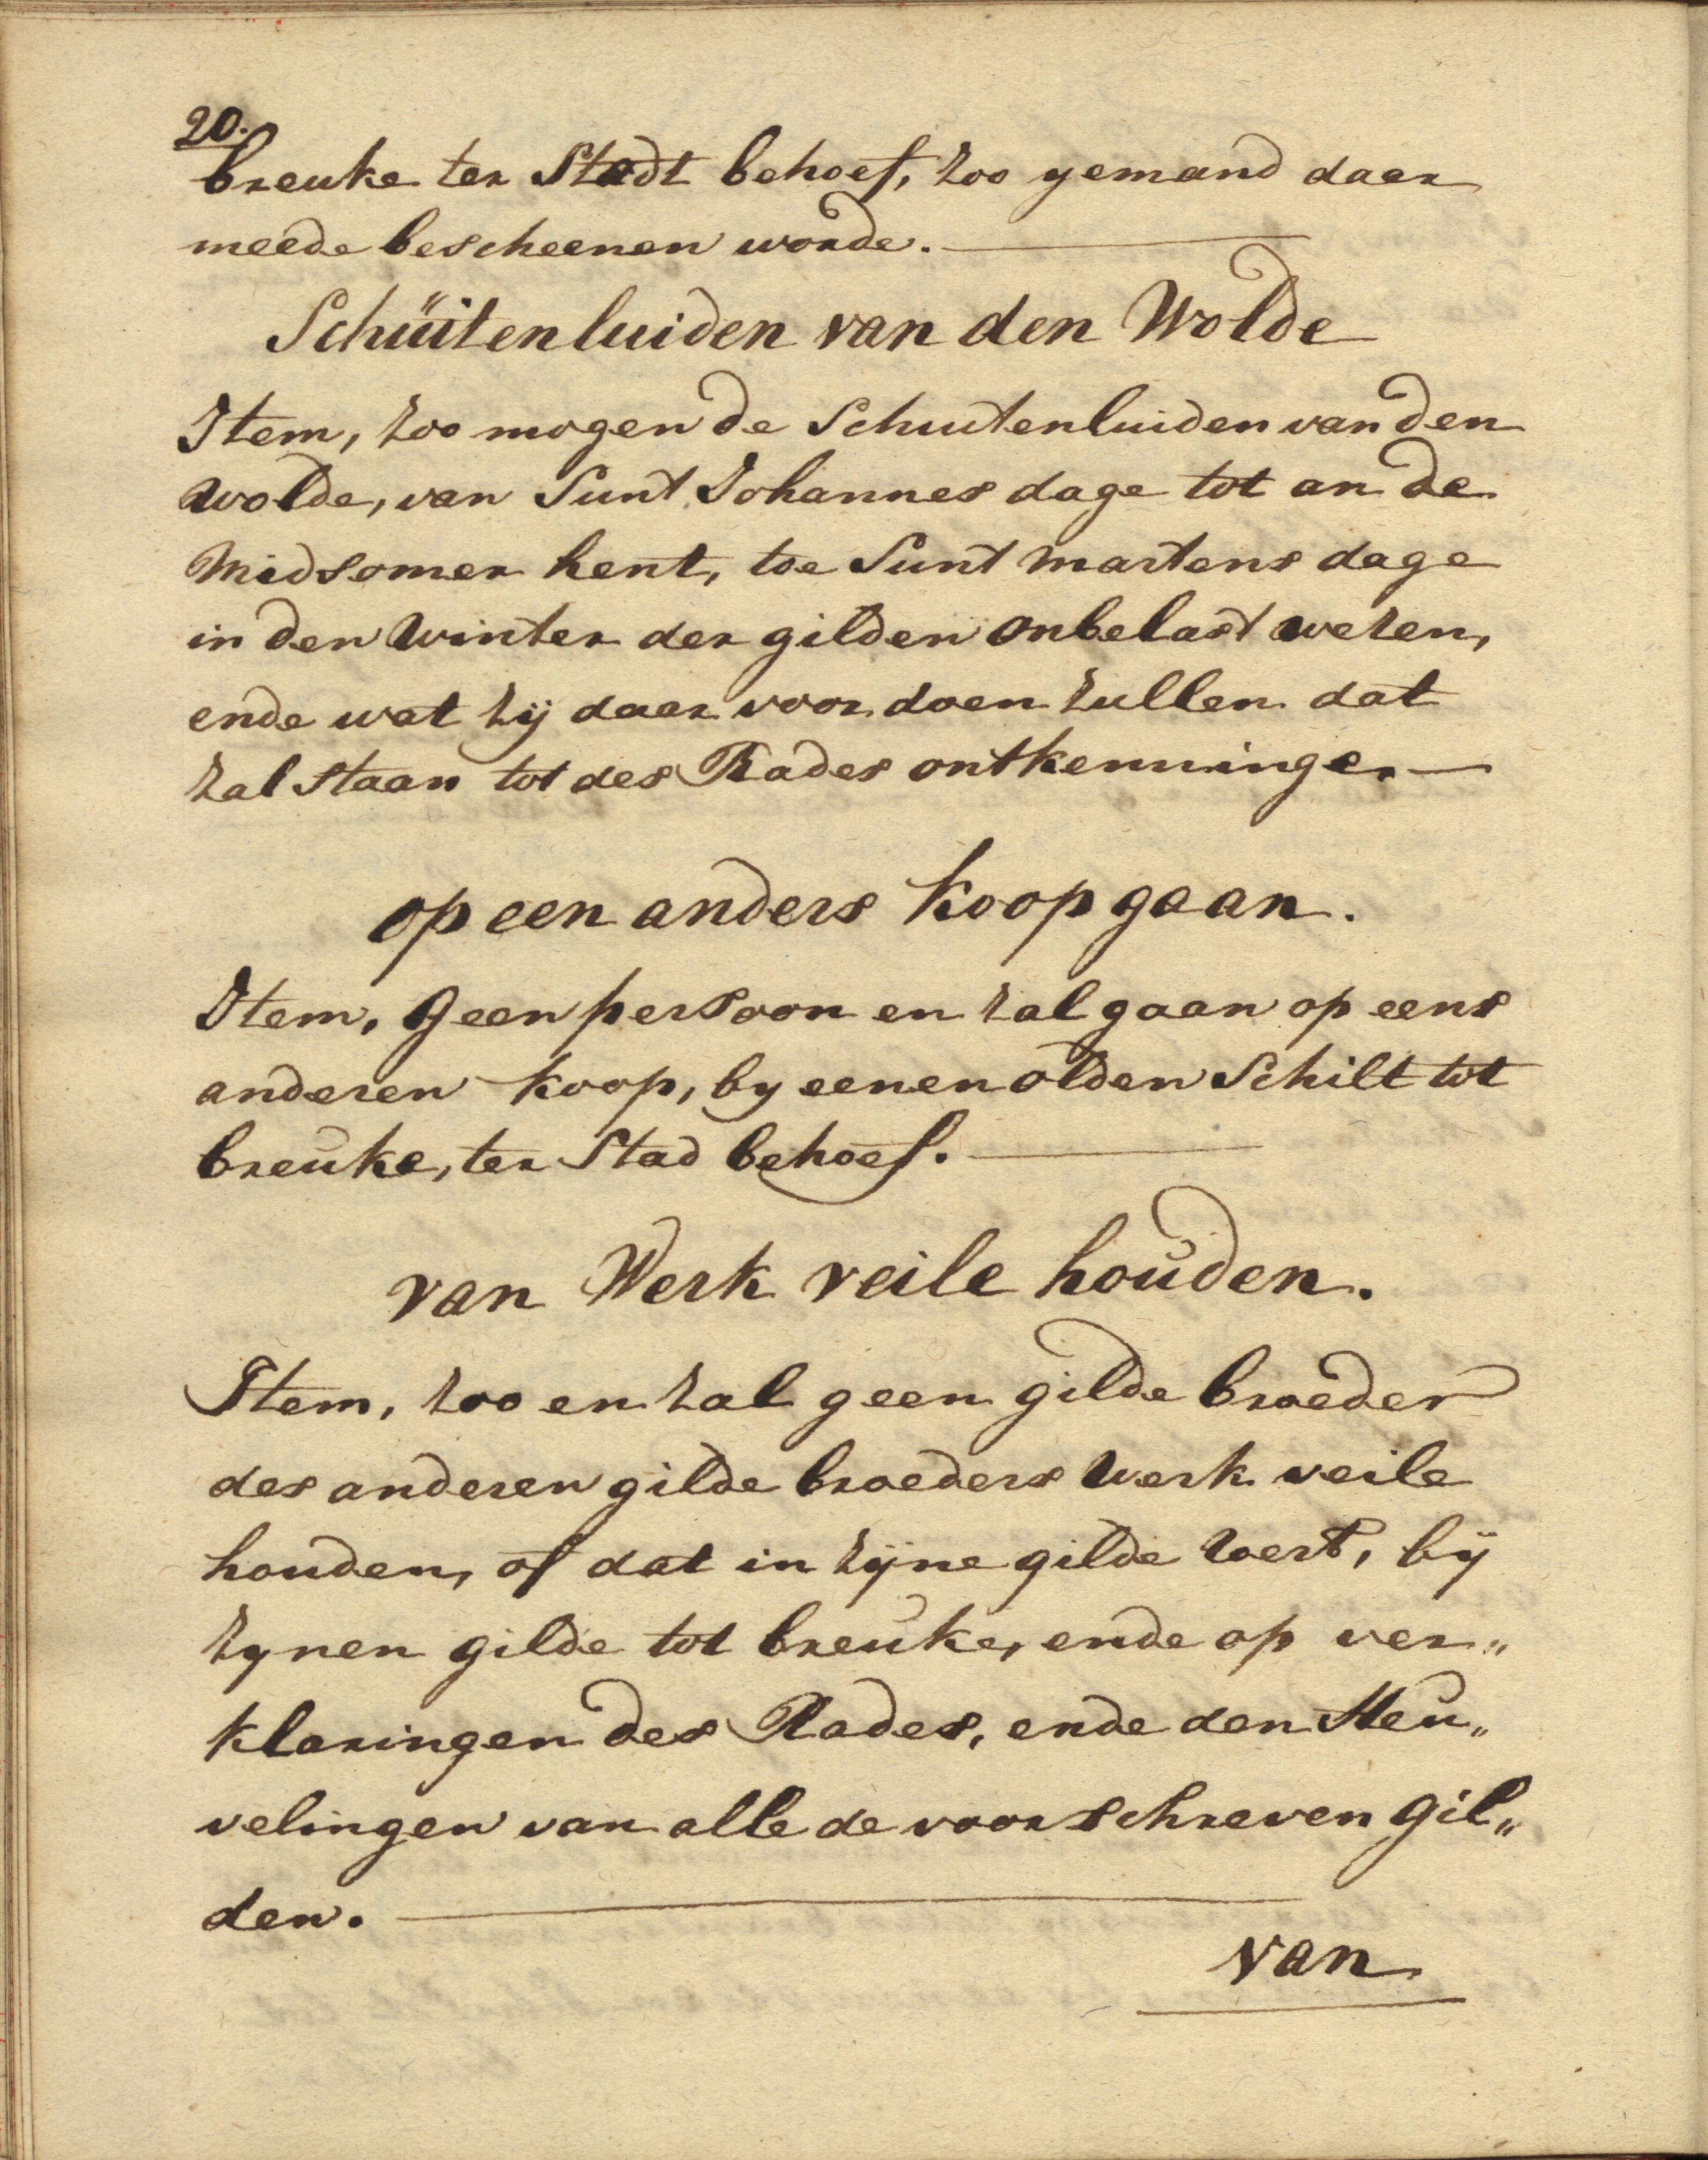 20.
breuke ter Stadt behoef, zoo yemand daer
meede bescheenen worde.
Schüitenluiden van den Wolde
Item, zoo mogen de Schuitenluiden van den
Wolde, van Sunt Johannes dage tot an de
Midsomer hent, toe Sunt Martens dage
in den Winter der gilden onbelast wezen,
ende wat zij daer voor doen zullen dat
zal staan tot des Rades ontkenninge.
op een anders Koop gaan.
Item, Geen persoon en zal gaan op eens
anderen Koop, by eenen olden Schilt tot
breuke, ter Stad behoef.
van Werk veile houden.
Item, zoo en zal geen gilde broeder
des anderen gilde broeders Werk veile
houden, of dat in zijne gilde West, bij
zynen gilde tot breuke, ende op ver„
klaringen des Rades, ende den Heu„
velingen van alle de voorschreven Gil„
den.
van